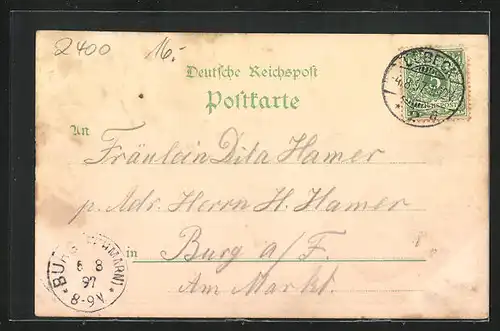 2400 16.-
Deutsche Reichspost
Postkarte
LÜBECK
An
Fräulein Dita Hamer
p. Adr. Herrn H. Hamer
in Burg a/F.
Am Markt.
BURG (FEHMARN)
6 8
97
8-9V